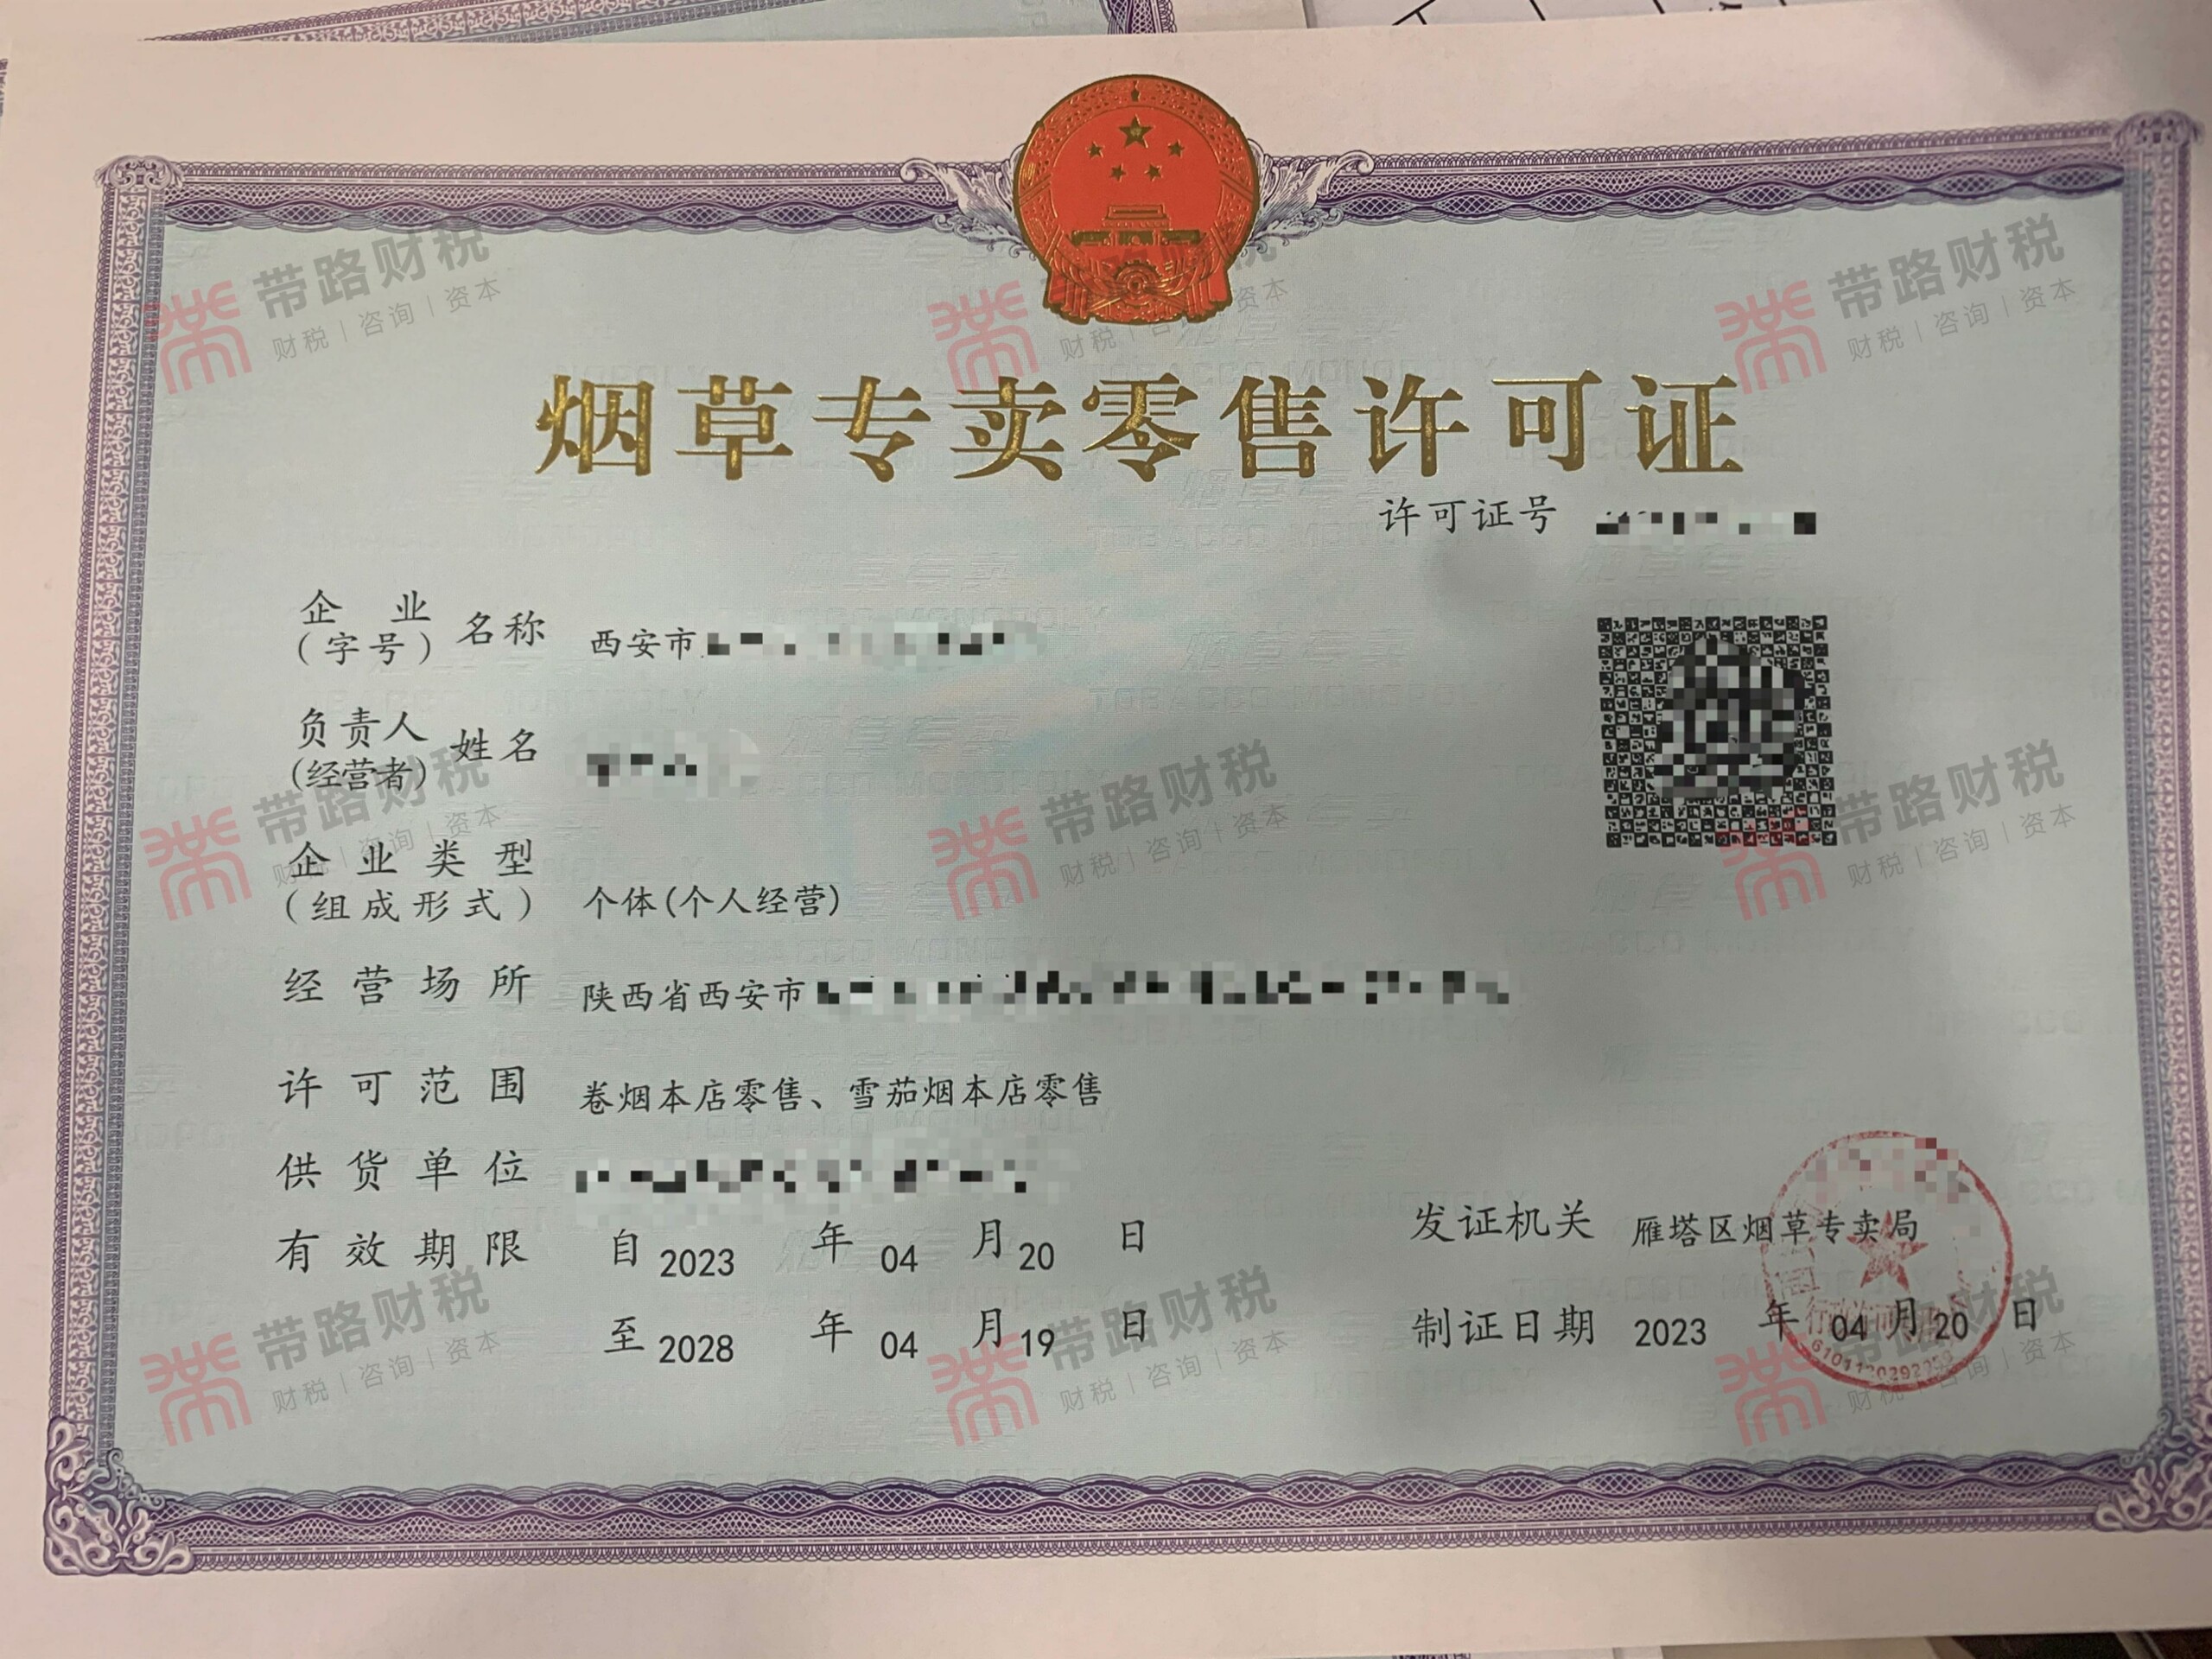 烟草专卖零售许可证
许可证号
企业(字号)名称 西安市
负责人(经营者)姓名
企业类型(组成形式) 个体(个人经营)
经营场所 陕西省西安市
许可范围 卷烟本店零售、雪茄烟本店零售
供货单位
有效期限 自2023年04月20日
至2028年04月19日
发证机关 雁塔区烟草专卖局
制证日期 2023年04月20日
带路财税
财税|咨询|资本
带路财税
财税|咨询|资本
带路财税
财税|咨询|资本
带路财税
财税|咨询|资本
带路财税
财税|咨询|资本
带路财税
财税|咨询|资本
带路财税
财税|咨询|资本
带路财税
财税|咨询|资本